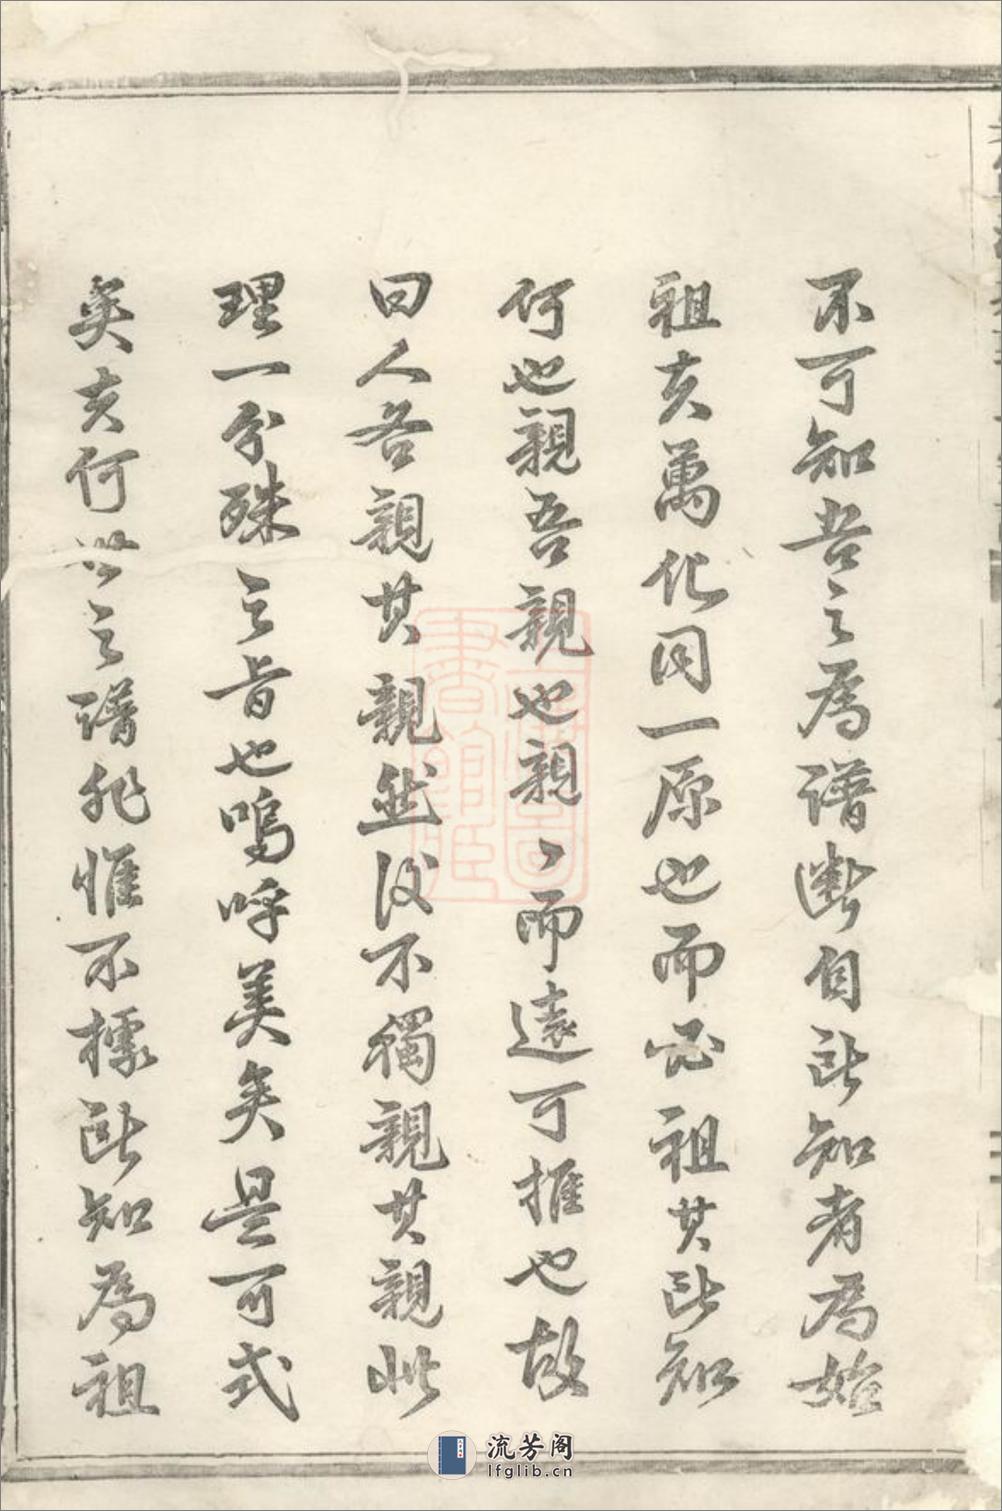 不可知吾之爲譜斷自所知者爲始
祖夫萬化同一原也而必祖其所知
何也親吾親也親〻而遠可推也故
曰人各親其親然後不獨親其親此
理一分殊之旨也嗚呼美矣是可式
矣夫何世之譜非惟不據所知為祖
流芳阁
lfglib.cn